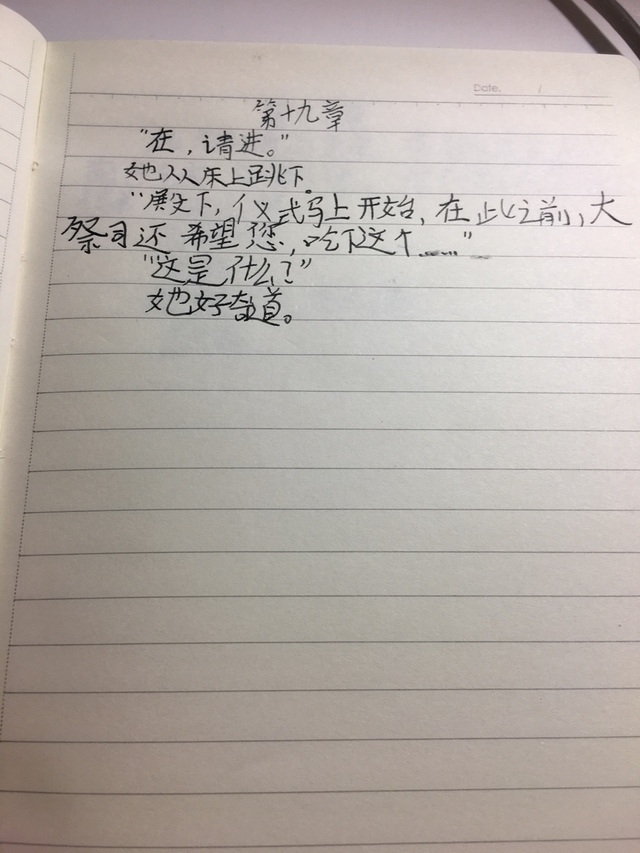 Date.
第十九章
“在，请进。”
她从床上跳下。
“殿下，仪式马上开始，在此之前，大
祭司还希望您，吃下这个……”
“这是什么？”
她好奇道。